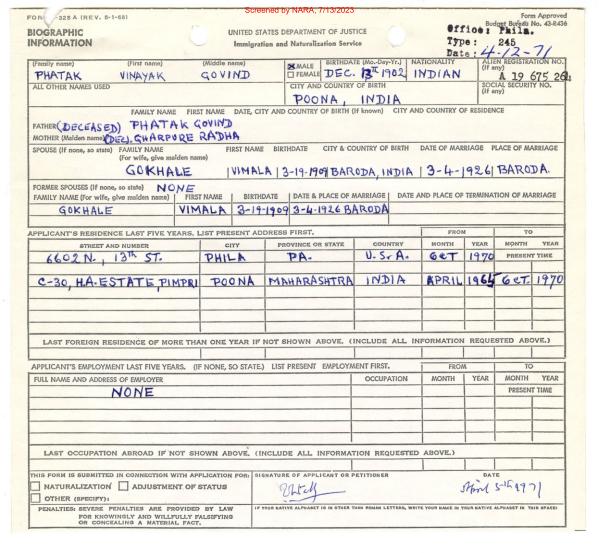 Screened by NARA, 7/13/2023
FORM G-325 A (REV. 5-1-68)
Form Approved
Budget Bureau No. 43-R436
BIOGRAPHIC INFORMATION
UNITED STATES DEPARTMENT OF JUSTICE
Immigration and Naturalization Service
Office: Phila.
Type: 245
Date: 4-12-71
(Family name) (First name) (Middle name) MALE FEMALE BIRTHDATE (Mo.-Day-Yr.) NATIONALITY ALIEN REGISTRATION NO. (If any)
PHATAK VINAYAK GOVIND DEC. 13TH 1902 INDIAN A 19 675 264
ALL OTHER NAMES USED CITY AND COUNTRY OF BIRTH SOCIAL SECURITY NO. (If any)
POONA, INDIA
FAMILY NAME FIRST NAME DATE, CITY AND COUNTRY OF BIRTH (If known) CITY AND COUNTRY OF RESIDENCE
FATHER (DECEASED) PHATAK GOVIND
MOTHER (Maiden name) (DEC). GHARPURE RADHA
SPOUSE (If none, so state) FAMILY NAME (For wife, give maiden name) FIRST NAME BIRTHDATE CITY & COUNTRY OF BIRTH DATE OF MARRIAGE PLACE OF MARRIAGE
GOKHALE VIMALA 3-19-1909 BARODA, INDIA 3-4-1926 BARODA.
FORMER SPOUSES (If none, so state) NONE
FAMILY NAME (For wife, give maiden name) FIRST NAME BIRTHDATE DATE & PLACE OF MARRIAGE DATE AND PLACE OF TERMINATION OF MARRIAGE
GOKHALE VIMALA 3-19-1909 3-4-1926 BARODA
APPLICANT'S RESIDENCE LAST FIVE YEARS. LIST PRESENT ADDRESS FIRST. FROM TO
STREET AND NUMBER CITY PROVINCE OR STATE COUNTRY MONTH YEAR MONTH YEAR
6602 N., 13TH ST. PHILA PA. U.S.A. OCT 1970 PRESENT TIME
C-30, H.A. ESTATE, PIMPRI POONA MAHARASHTRA INDIA APRIL 1965 OCT. 1970
LAST FOREIGN RESIDENCE OF MORE THAN ONE YEAR IF NOT SHOWN ABOVE. (INCLUDE ALL INFORMATION REQUESTED ABOVE.)
APPLICANT'S EMPLOYMENT LAST FIVE YEARS. (IF NONE, SO STATE.) LIST PRESENT EMPLOYMENT FIRST. FROM TO
FULL NAME AND ADDRESS OF EMPLOYER OCCUPATION MONTH YEAR MONTH YEAR
NONE PRESENT TIME
LAST OCCUPATION ABROAD IF NOT SHOWN ABOVE. (INCLUDE ALL INFORMATION REQUESTED ABOVE.)
THIS FORM IS SUBMITTED IN CONNECTION WITH APPLICATION FOR: SIGNATURE OF APPLICANT OR PETITIONER DATE
NATURALIZATION ADJUSTMENT OF STATUS
OTHER (SPECIFY):
April 5th 1971
PENALTIES: SEVERE PENALTIES ARE PROVIDED BY LAW FOR KNOWINGLY AND WILLFULLY FALSIFYING OR CONCEALING A MATERIAL FACT.
IF YOUR NATIVE ALPHABET IS IN OTHER THAN ROMAN LETTERS, WRITE YOUR NAME IN YOUR NATIVE ALPHABET IN THIS SPACE: